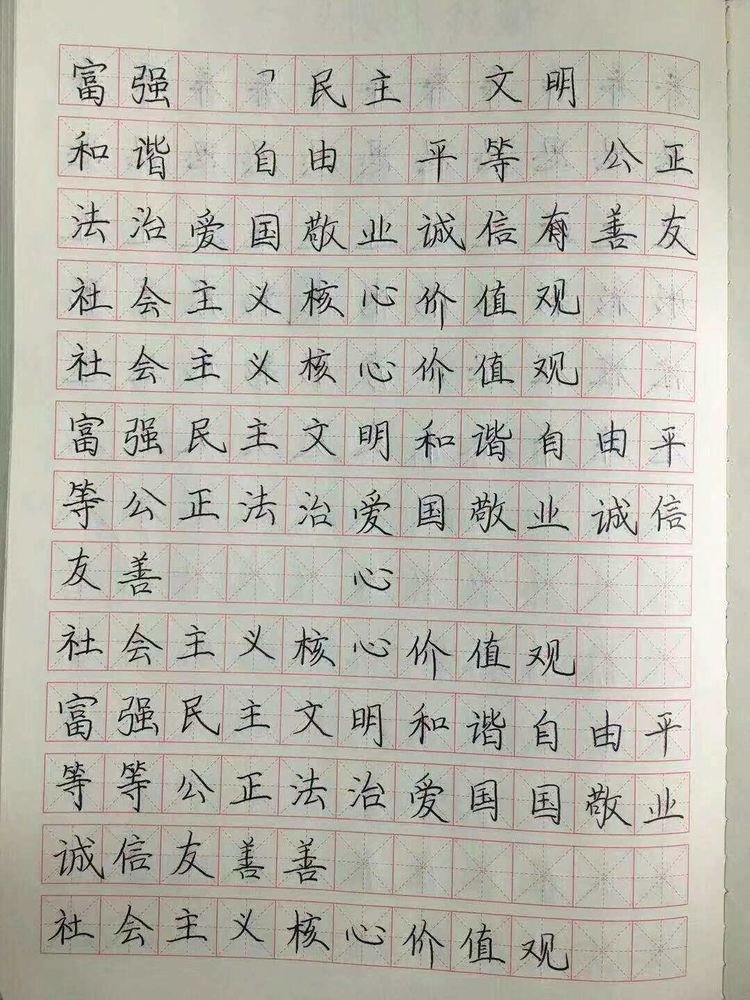 富强 民主 文明
和谐 自由 平等 公正
法治爱国敬业诚信有善友
社会主义核心价值观
社会主义核心价值观
富强民主文明和谐自由平
等公正法治爱国敬业诚信
友善 心
社会主义核心价值观
富强民主文明和谐自由平
等等公正法治爱国国敬业
诚信友善善
社会主义核心价值观